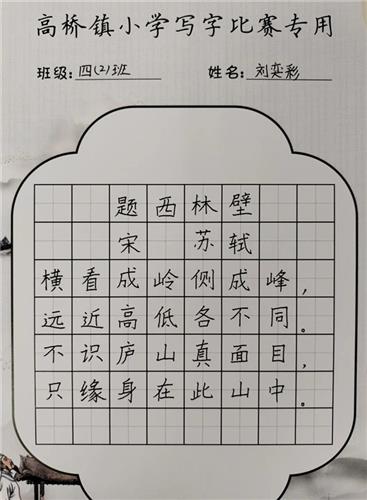 高桥镇小学写字比赛专用
班级:四(2)班 姓名:刘奕彩
题西林壁
宋 苏轼
横看成岭侧成峰,
远近高低各不同。
不识庐山真面目,
只缘身在此山中。